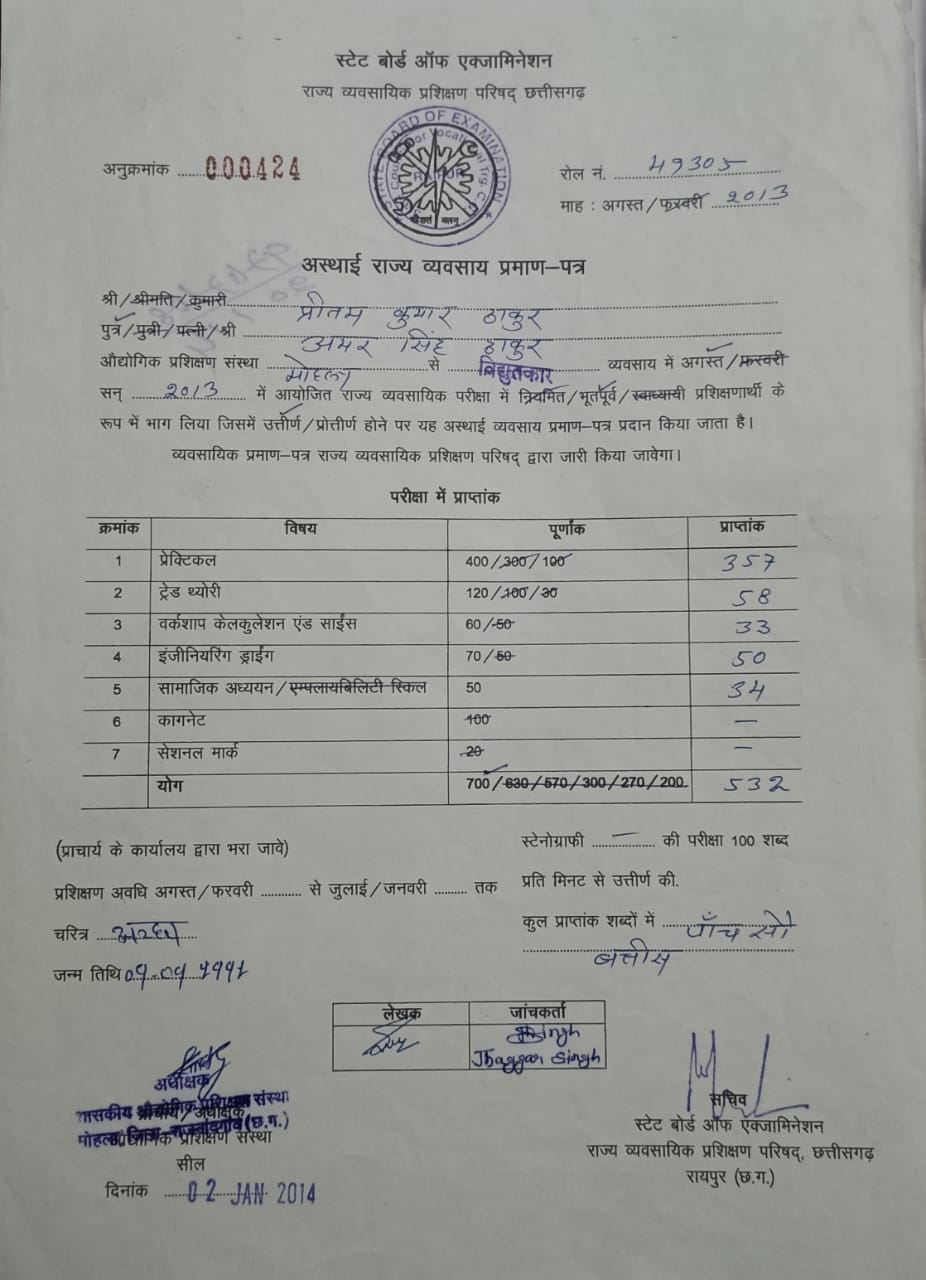 स्टेट बोर्ड ऑफ एक्जामिनेशन
राज्य व्यवसायिक प्रशिक्षण परिषद् छत्तीसगढ़
STATE BOARD OF EXAMINATION
अनुक्रमांक ........000424
रोल नं. 49305
माह : अगस्त/फरवरी 2013
अस्थाई राज्य व्यवसाय प्रमाण–पत्र
श्री/श्रीमति/कुमारी प्रीतम कुमार ठाकुर
पुत्र/पुत्री/पत्नी/श्री अमर सिंह ठाकुर
औद्योगिक प्रशिक्षण संस्था मोहला से विद्युतकार व्यवसाय में अगस्त/फरवरी
सन् 2013 में आयोजित राज्य व्यवसायिक परीक्षा में नियमित/भूतपूर्व/स्वाध्यायी प्रशिक्षणार्थी के
रूप में भाग लिया जिसमें उत्तीर्ण/प्रोत्तीर्ण होने पर यह अस्थाई व्यवसाय प्रमाण–पत्र प्रदान किया जाता है।
व्यवसायिक प्रमाण–पत्र राज्य व्यवसायिक प्रशिक्षण परिषद् द्वारा जारी किया जावेगा।
परीक्षा में प्राप्तांक
क्रमांक विषय पूर्णांक प्राप्तांक
1 प्रेक्टिकल 400/300/100 357
2 ट्रेड थ्योरी 120/100/30 58
3 वर्कशाप केलकुलेशन एंड साईंस 60/50 33
4 इंजीनियरिंग ड्राईंग 70/50 50
5 सामाजिक अध्ययन/एम्पलायबिलिटी स्किल 50 34
6 कागनेट 100 —
7 सेशनल मार्क 20 —
योग 700/630/570/300/270/200 532
(प्राचार्य के कार्यालय द्वारा भरा जावे)
स्टेनोग्राफी — की परीक्षा 100 शब्द
प्रशिक्षण अवधि अगस्त/फरवरी ........... से जुलाई/जनवरी ......... तक
प्रति मिनट से उत्तीर्ण की.
चरित्र अच्छा
कुल प्राप्तांक शब्दों में पाँच सौ
बत्तीस
जन्म तिथि 09-09 1991
लेखक जांचकर्ता
Jhaggar Singh
अधीक्षक
शासकीय औद्योगिक प्रशिक्षण संस्था
प्राचार्य/अधीक्षक
मोहला, जिला-राजनांदगांव (छ.ग.)
औद्योगिक प्रशिक्षण संस्था
सील
दिनांक 02 JAN 2014
सचिव
स्टेट बोर्ड ऑफ एक्जामिनेशन
राज्य व्यवसायिक प्रशिक्षण परिषद्, छत्तीसगढ़
रायपुर (छ.ग.)